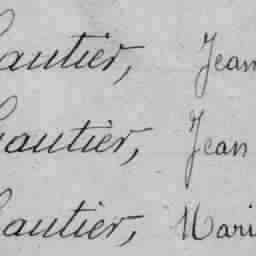 Gautier, Jean
Gautier, Jean
Gautier, Mari